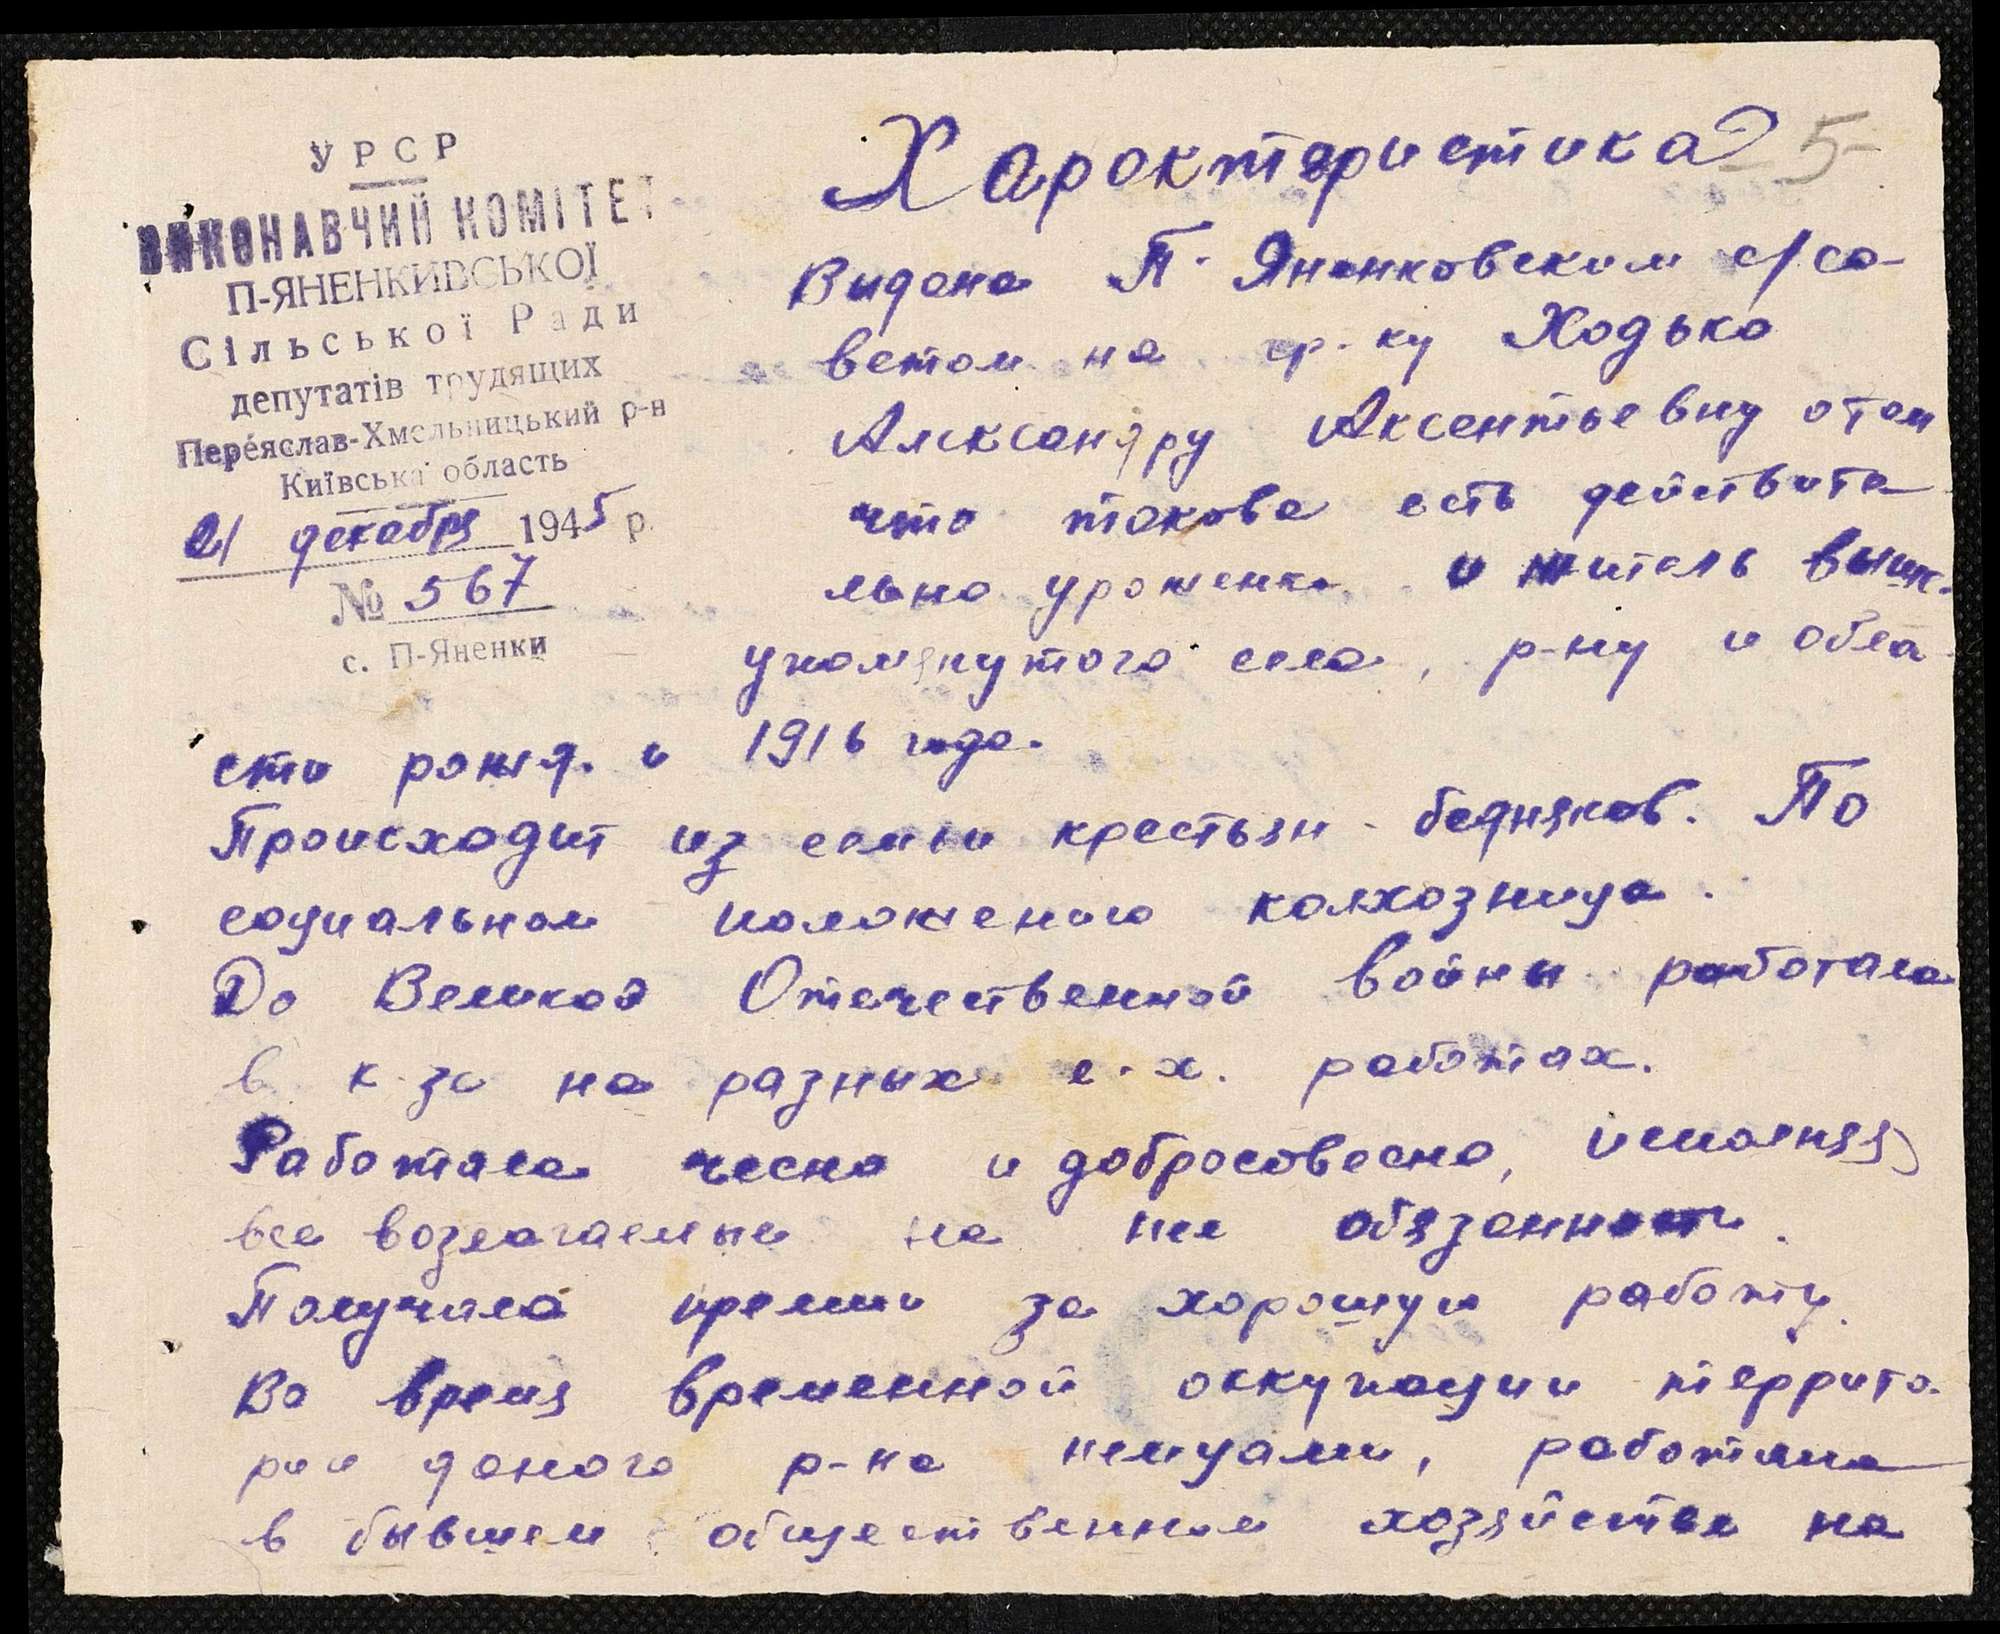 УРСР
ВИКОНАВЧИЙ КОМІТЕТ
П-ЯНЕНКИВСЬКОЇ
Сільської Ради
депутатів трудящих
Переяслав-Хмельницький р-н
Київська область
21 декабря 1945 р.
№ 567
с. П-Яненки
Характеристика
25
Выдана П-Яненковским с/со-
ветом на гр-ку Ходько
Александру Аксентьевну отом
что такова есть действите-
льно уроженка и житель выше-
упомянутого села, р-ну и обла-
сти рожд. и 1916 года.
Происходит из семьи крестьян-бедняков. По
социальном положению колхозница.
До Великой Отечественной войны работала
в к-зе на разных с.-х. работах.
Работала чесно и добросовесно, исполняя
все возлагаемые на нее обязанности.
Получала премии за хорошую работу.
Во время временной оккупации террито-
рии даного р-на немцами, работала
в бывшем общественном хозяйстве на